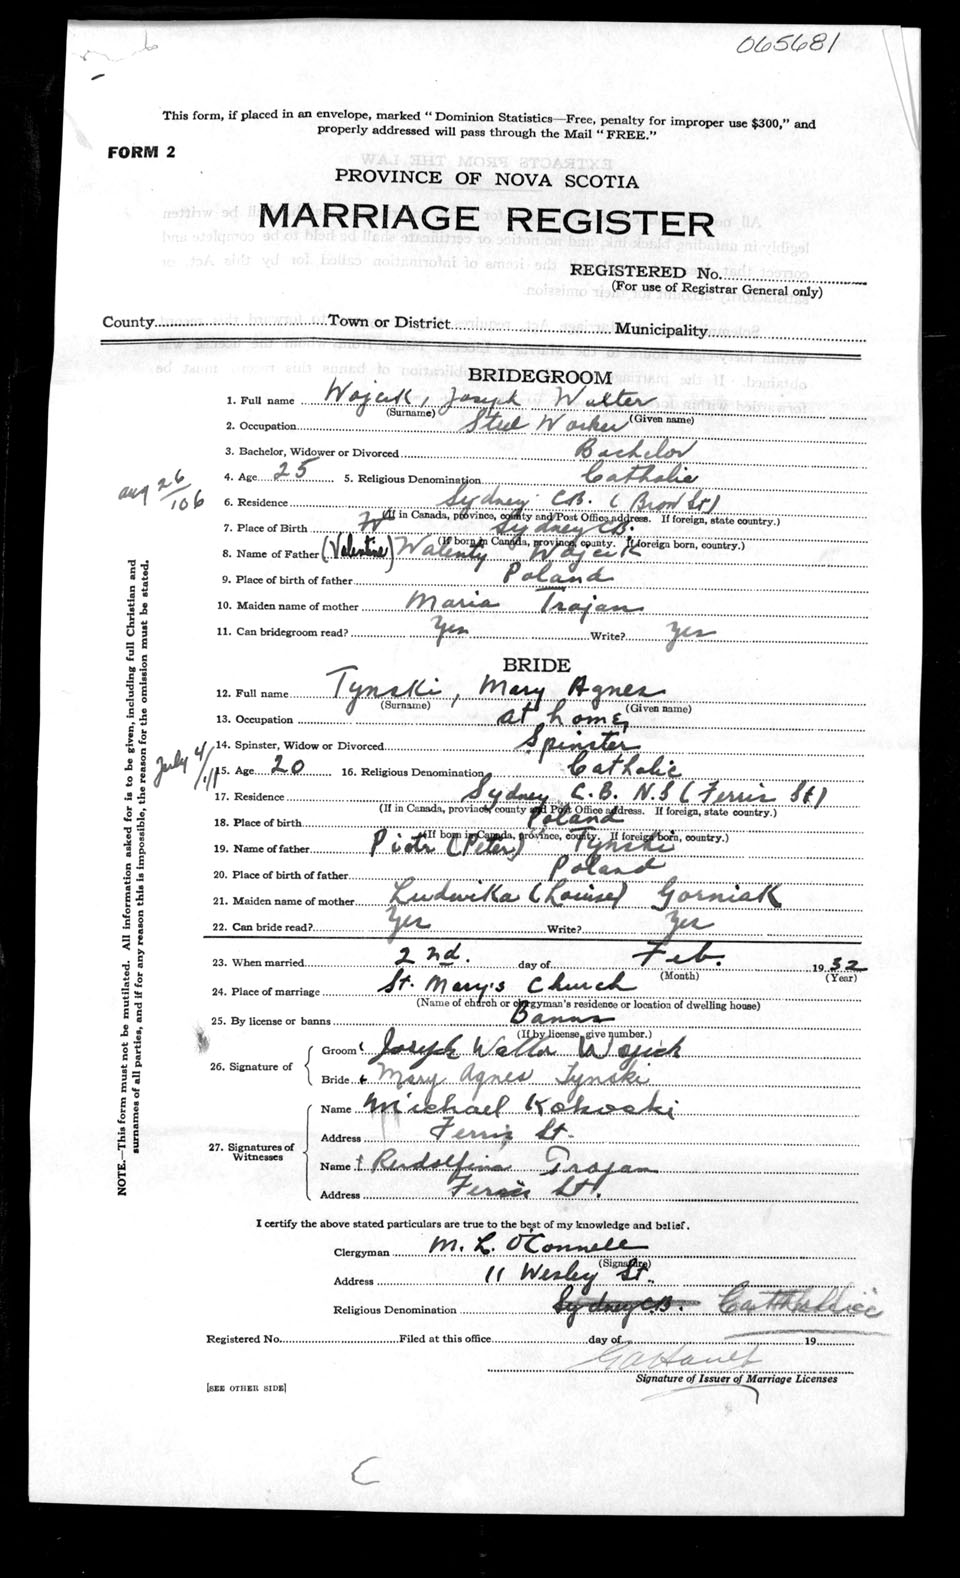 065681
This form, if placed in an envelope, marked "Dominion Statistics—Free, penalty for improper use $300," and
properly addressed will pass through the Mail "FREE."
FORM 2
PROVINCE OF NOVA SCOTIA
MARRIAGE REGISTER
REGISTERED No.
(For use of Registrar General only)
County Town or District Municipality
BRIDEGROOM
1. Full name Wojcik, Joseph Walter
(Surname) (Given name)
2. Occupation Steel Worker
3. Bachelor, Widower or Divorced Bachelor
4. Age 25 5. Religious Denomination Catholic
Aug 26/106
6. Residence Sydney C.B. (Brow St)
(If in Canada, province, county and Post Office address. If foreign, state country.)
7. Place of Birth Sydney C.B.
(If born in Canada, province, county. If foreign born, country.)
8. Name of Father (Valentine) Walenty Wojcik
9. Place of birth of father Poland
10. Maiden name of mother Maria Trojan
11. Can bridegroom read? Yes Write? Yes
BRIDE
12. Full name Tynski, Mary Agnes
(Surname) (Given name)
13. Occupation at home
14. Spinster, Widow or Divorced Spinster
July 4/11
15. Age 20 16. Religious Denomination Catholic
17. Residence Sydney C.B. N.S (Ferris St)
(If in Canada, province, county and Post Office address. If foreign, state country.)
18. Place of birth Poland
(If born in Canada, province, county. If foreign born, country.)
19. Name of father Piotr (Peter) Tynski
20. Place of birth of father Poland
21. Maiden name of mother Ludwika (Louise) Gorniak
22. Can bride read? Yes Write? Yes
23. When married 2nd. day of Feb. 1932
(Month) (Year)
24. Place of marriage St. Mary's Church
(Name of church or clergyman's residence or location of dwelling house)
25. By license or banns Banns
(If by license, give number.)
26. Signature of
Groom Joseph Walter Wojcik
Bride Mary Agnes Tynski
27. Signatures of Witnesses
Name Michael Kokoski
Address Ferris St.
Name Rudolfina Trojan
Address Ferris St.
I certify the above stated particulars are true to the best of my knowledge and belief.
Clergyman M. L. O'Connell
(Signature)
Address 11 Wesley St.
Religious Denomination Sydney C.B. Catholic
Registered No. Filed at this office day of 19
Signature of Issuer of Marriage Licenses
[SEE OTHER SIDE]
NOTE.—This form must not be mutilated. All information asked for is to be given, including full Christian and
surnames of all parties, and if for any reason this is impossible, the reason for the omission must be stated.